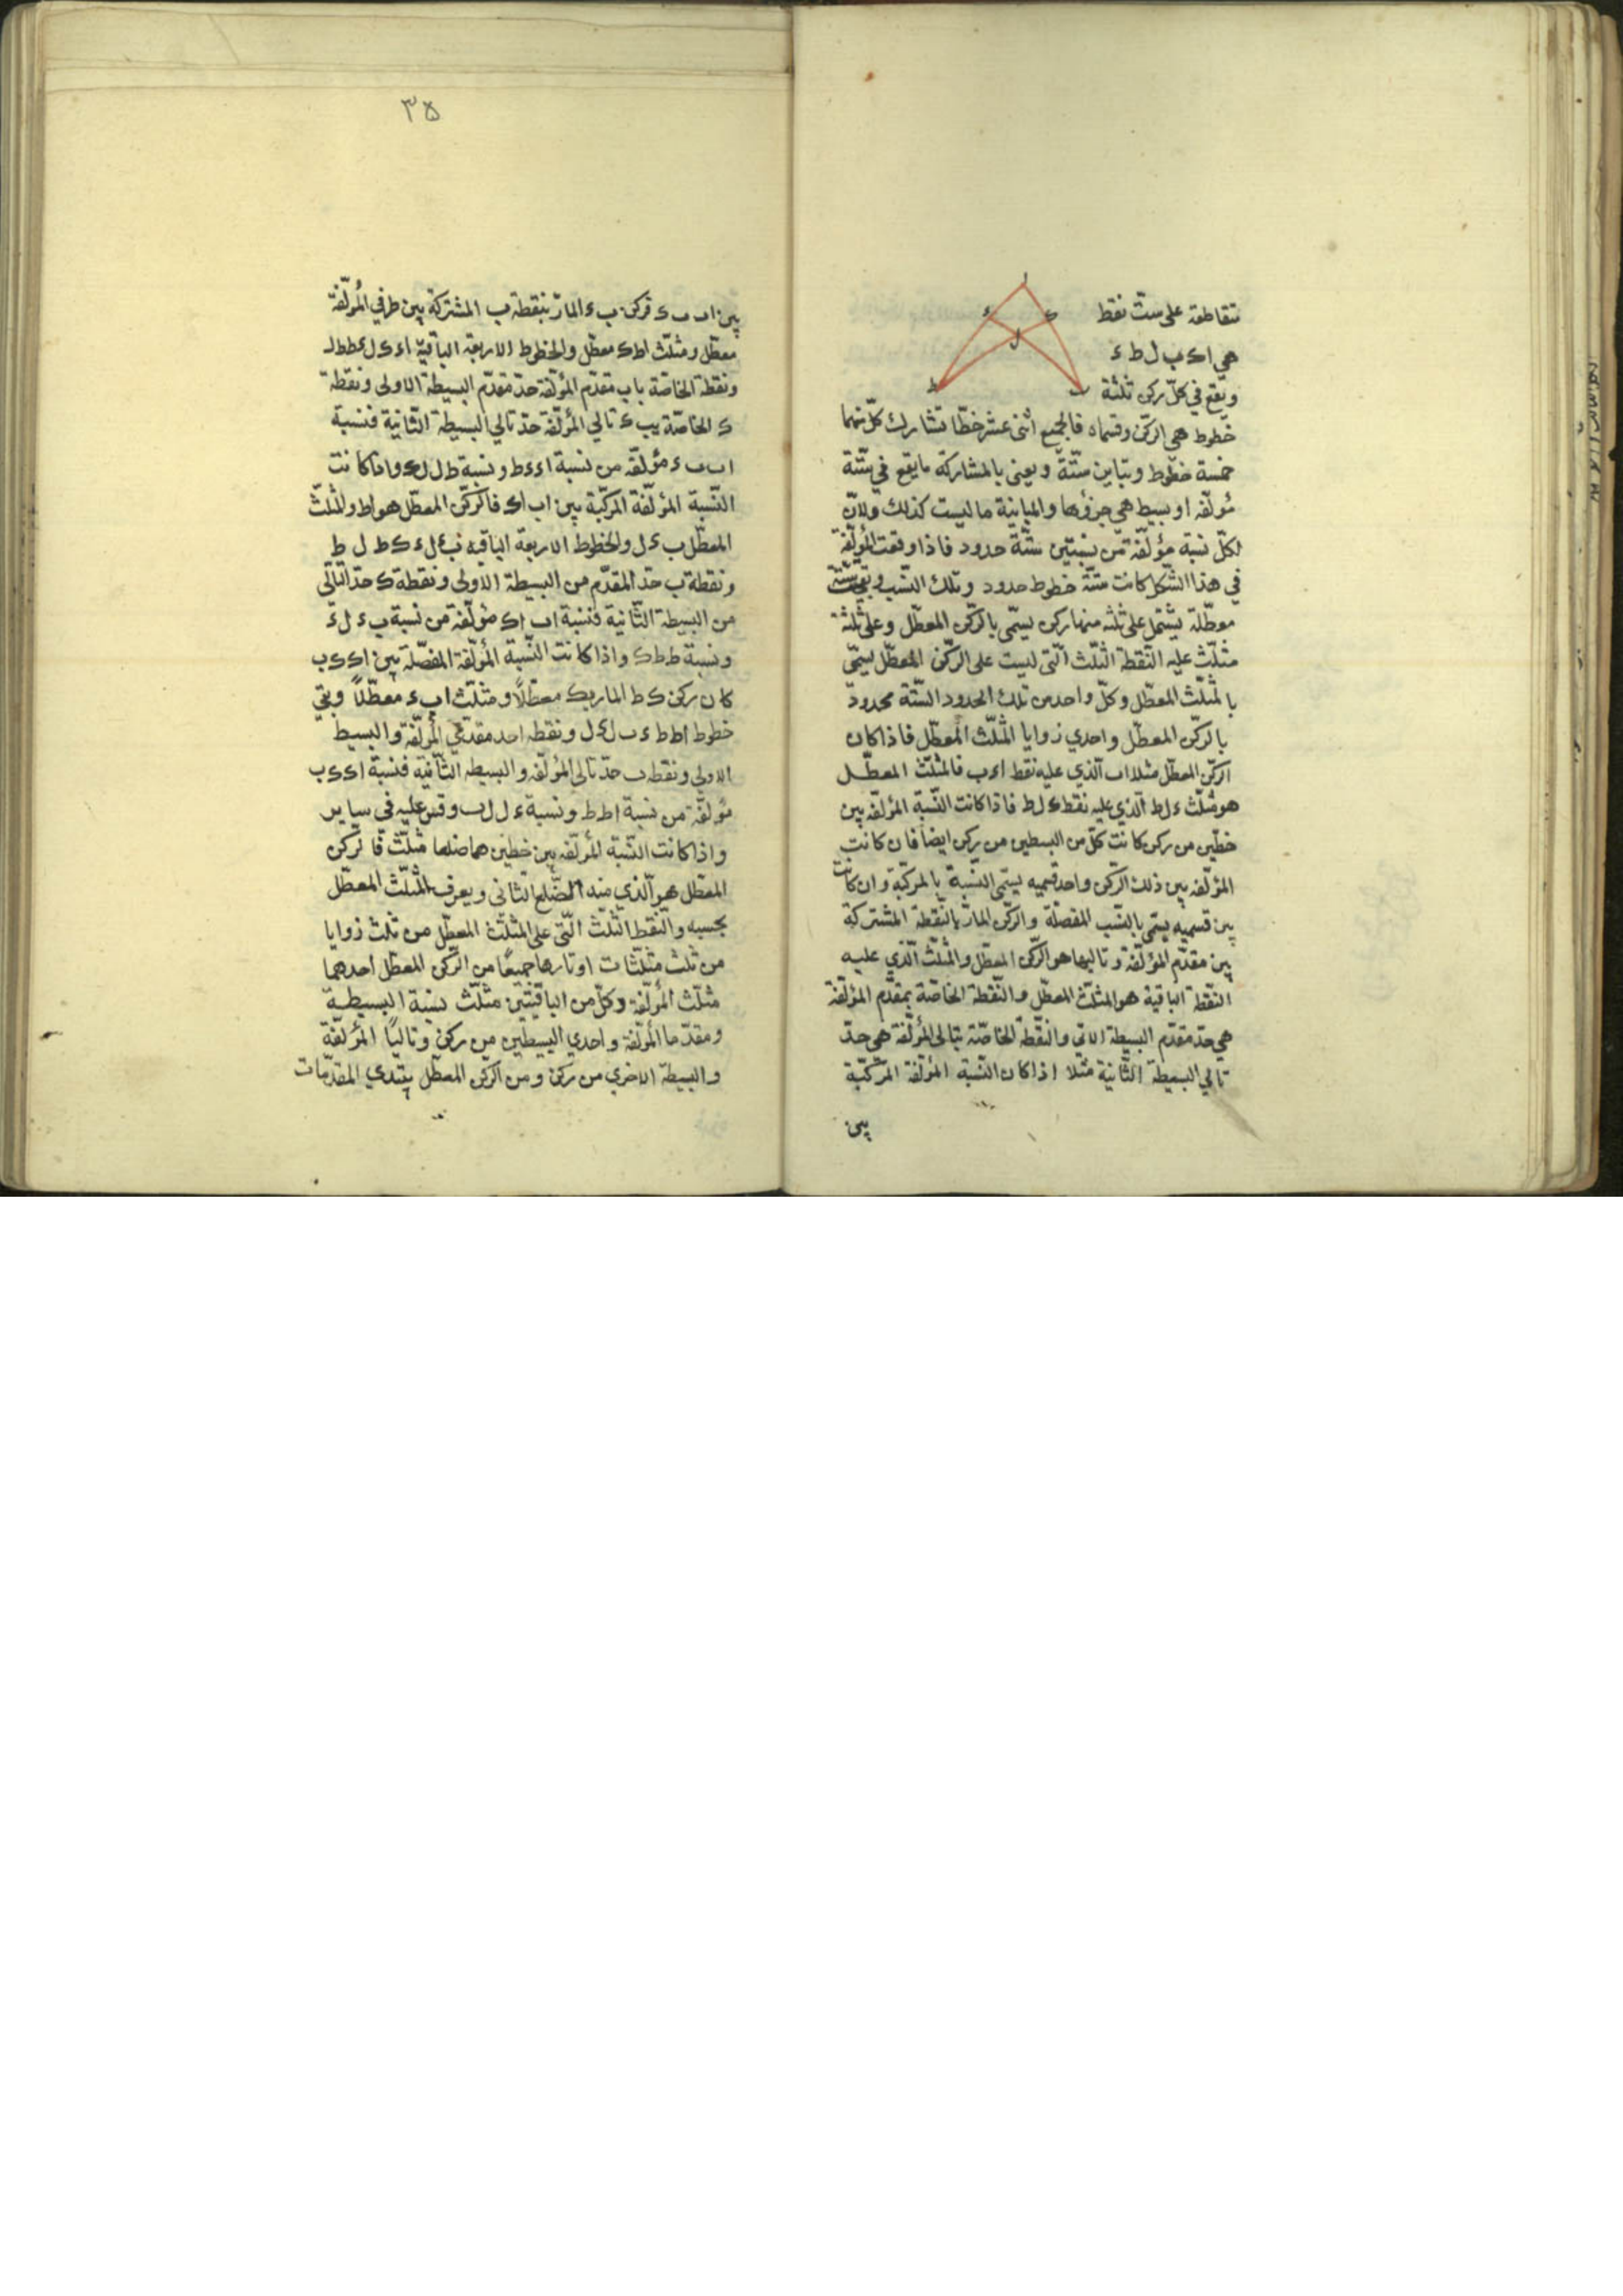 متقاطعة على ستّ نقط
هي ا ك ب ل ط ء
ويقع في كلّ ركن ثلثة
خطوط هي الركن وقسماه فالجميع اثنى عشر خطّا تشارك كلّ منهما
خمسة خطوط وتباين ستّة ويعنى بالمشاركة ما يقع في ستّة
مؤلّفه او بسيط هي جزؤها والمباينة ما ليست كذلك ولانّ
لكلّ نسبة مؤلّفة من نسبتين ستّة حدود فاذا وقعت المؤلّفة
في هذا الشكل كانت ستّة خطوط حدود وتلك النّسب وبقيت ستّة
معطّلة يشتمل على ثلثة منها ركن يسمّى بالركن المعطّل وعلى ثلثة
مثلّث عليه النّقطة الثلث الّتى ليست على الركن المعطّل يسمّى
بالمثلّث المعطّل وكلّ واحد من تلك الحدود الستّة محدود
بالركن المعطّل واحدي زوايا المثلّث المعطّل فاذا كان
الركن المعطّل مثلا اب الّذي عليه نقط ا ء ب فالمثلّث المعطّل
هو مثلّث ء ل ط الّذي عليه نقط ك ل ط فاذا كانت النّسبة المؤلّفه بين
خطّين من ركن كانت كلّ من البسطين من ركن ايضا فان كانت
المؤلّفه بين ذلك الركن واحد قسميه يسمّى النّسبة بالمركّبة وان كانت
بين قسميه يسمّى بالنّسب المفصّلة والركن المارّ بالنّقطة المشتركة
بين مقدّم المؤلّفة وتاليها هو الركن المعطّل والمثلّث الّذي عليه
النّقطة الباقية هو المثلّث المعطّل والنّقطة الخاصّة بمقدّم المؤلّفة
هي حدّ مقدّم البسيطة الاتى والنّقطة الخاصّة بتالى المؤلّفة هي حدّ
تالي البسيطة الثّانية مثلا اذا كان النّسبة المؤلّفة المركّبة
بين
٣٥
بين اب ب ء فركن ب ء المارّ بنقطة ب المشتركة بين طرفي المؤلّفة
معطّل ومثلّث ا ط ك معطّل والخطوط الاربعة الباقية
ونقطة الخاصّة باب مقدّم المؤلّفة حدّ مقدّم البسيطة الاولى ونقطة
ك الخاصّة بب ء تالي المؤلّفة حدّ تالي البسيطة الثّانية فنسبة
اب ب ء مؤلّفه من نسبة ا ء ء ط ونسبة ط ل ل ك واذا كانت
النّسبة المؤلّفة المركّبة بين اب اك فالركن المعطّل هو اط والمثلّث
المعطّل ب ء ل والخطوط الاربعة الباقيه ب ء ل ء ك ط ل ط
ونقطة ب حدّ المقدّم من البسيطة الاولى ونقطة ك حدّ التّالى
من البسيطة الثّانية فنسبة اب اك مؤلّفة من نسبة ب ء ل ء
ونسبة ط ل ط ك واذا كانت النّسبة المؤلّفة المفصّلة بين اك ك ب
كان ركن ك ط المار بك معطّلًا ومثلّث اب ء معطّلًا وبقي
خطوط اط ط ء ب ل ء ل ونقطه احد مقدّمي المؤلّفة والبسيط
الاولى ونقطه ب حدّ تالي المؤلّفه والبسيطه الثّانية فنسبة اك ك ب
مؤلّفة من نسبة اط ط ء ونسبة ء ل ل ب وقس عليه في ساير
واذا كانت النّسبة المؤلّفه بين خطّين هما ضلعا مثلّث فالركن
المعطّل هو الّذي منه الضّلع الثاني ويعرف المثلّث المعطّل
بحسبه والنّقط الثلث الّتى على المثلّث المعطّل من ثلث زوايا
من ثلث مثلّثات اوتارها جميعًا من الركن المعطّل احدهما
مثلّث المؤلّفة وكلّ من الباقيتين مثلّث نسبة البسيطة
ومقدّما المؤلّفة واحدي البسيطين من ركن وتاليًا المؤلّفة
والبسيطة الاخري من ركن ومن الركن المعطّل يبتدي المقدّمات